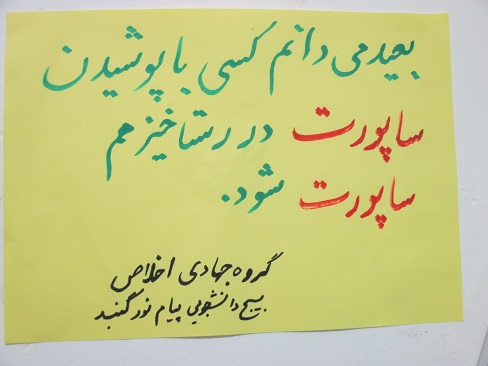 بعید می دانم کسی با پوشیدن
ساپورت در رستاخیز هم
ساپورت شود.
گروه جهادی اخلاص
بسیج دانشجویی پیام نور گنبد